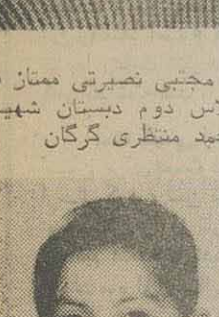 مجتبی نصیرتی ممتاز
دوم دبستان شهید
منتظری گرگان